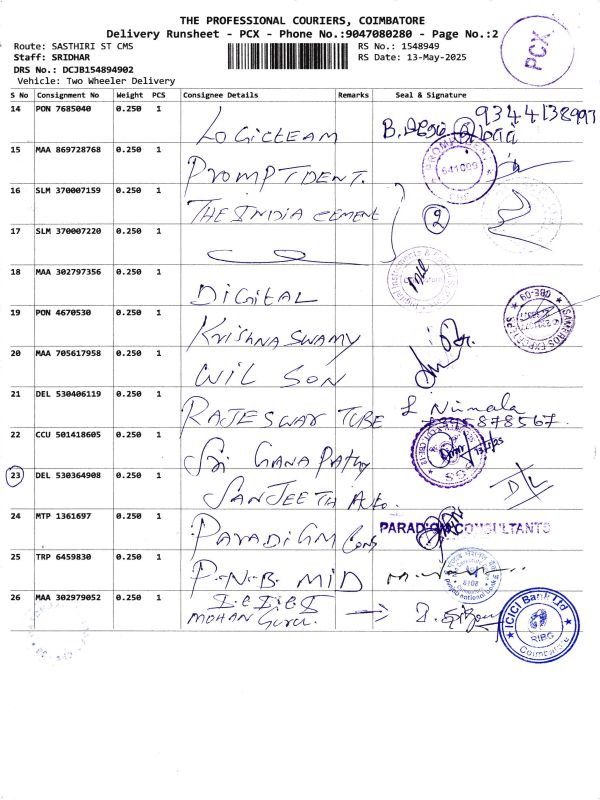 THE PROFESSIONAL COURIERS, COIMBATORE
Delivery Runsheet - PCX - Phone No.:9047080280 - Page No.:2
Route: SASTHIRI ST CMS
RS No.: 1548949
Staff: SRIDHAR
RS Date: 13-May-2025
DRS No.: DCJB154894902
Vehicle: Two Wheeler Delivery
PCX
S No Consignment No Weight PCS Consignee Details Remarks Seal & Signature
14 PON 7685040 0.250 1 LOGICTEAM 9344138993
15 MAA 869728768 0.250 1 PROMPT DENT. 641009
16 SLM 370007159 0.250 1 THE INDIA CEMENT 2
17 SLM 370007220 0.250 1
18 MAA 302797356 0.250 1 DIGITAL
19 PON 4670530 0.250 1 KRISHNASWAMY
20 MAA 705617958 0.250 1 WILSON
21 DEL 530406119 0.250 1 RAJESWARY TUBE L Nirmala
22 CCU 501418605 0.250 1 Sri GANAPATHY
23 DEL 530364908 0.250 1 SANJEETH Auto.
24 MTP 1361697 0.250 1 PARADIGM Cons PARADIGM CONSULTANTS
25 TRP 6459830 0.250 1 P.N.B. MID
26 MAA 302979052 0.250 1 I.C.I.C.I
MOHAN Guru.
ICICI Bank Ltd
RIBG
Coimbatore